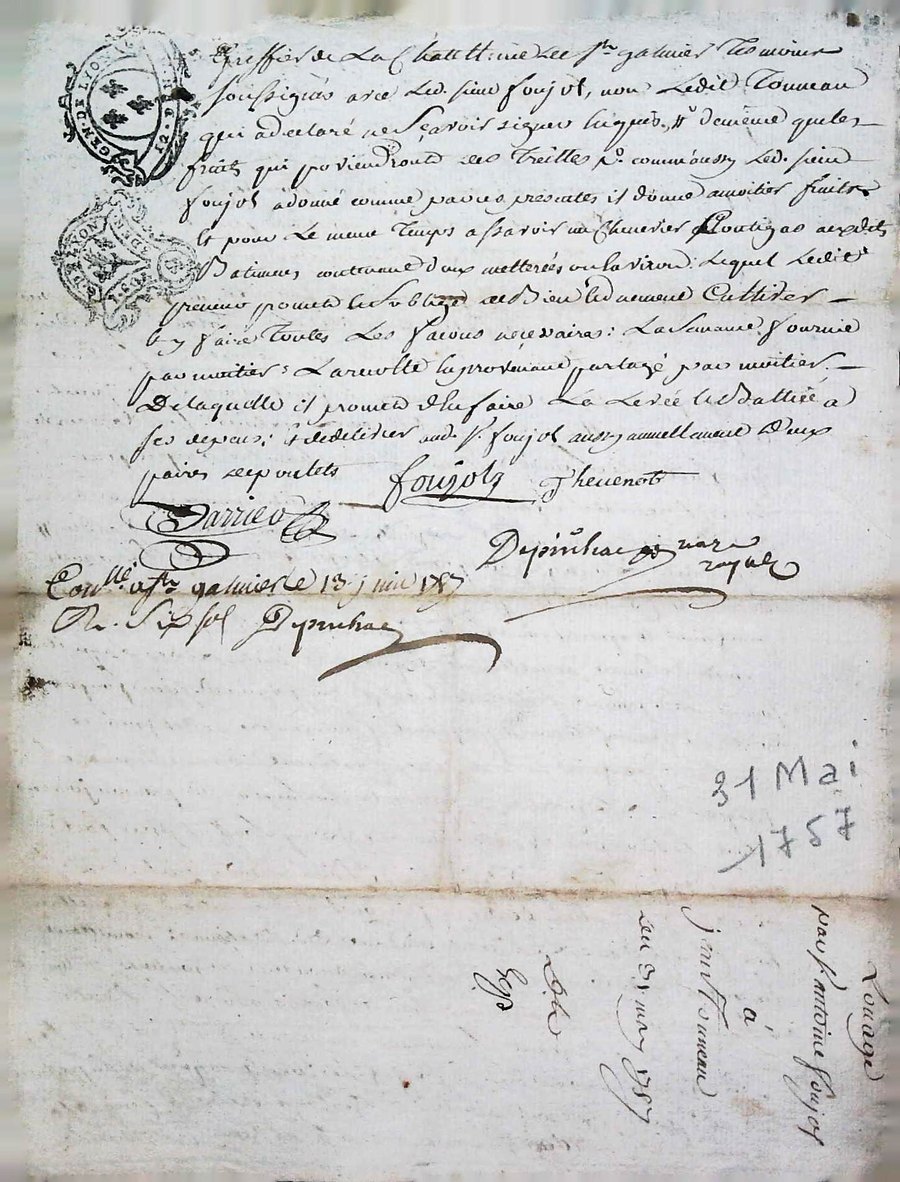 GEN. DE LYON
greffier de La Chatttnie de st galmier Temoins
soussignés avec Led. sieur foujol, non Ledit Tonneau
qui a declaré ne Sçavoir signer Enquis, demême que les
fruits qui proviendront des Treilles
foujol a donné comme par ces presentes il donne a moitier fruits
et pour Le meme Temps a sçavoir un Chenevier Contigas auxdits
Batimens contenant deux metterées ou Environ. Lequel Ledit
preneur promet et s'oblige de Bien et duement Cultiver
et y faire Toutes Les façons necessaires: La Semance fournie
par moitier: La recolte en provenant partagé par moitier.
De laquelle il promet d'En faire La Levée et Battiée a
ses depens; et de delivrer aud. sr. foujol aussy annuellement Deux
paires de poulets foujols Thevenot
Darrieu
Depinhac no.re
royal
Con.llé a st galmier le 13 juin 1757
R. Six sol Depinhac
31 Mai
1757
Louage
par sr antoine foujol
à
jean Tonneau
du 31 may 1757